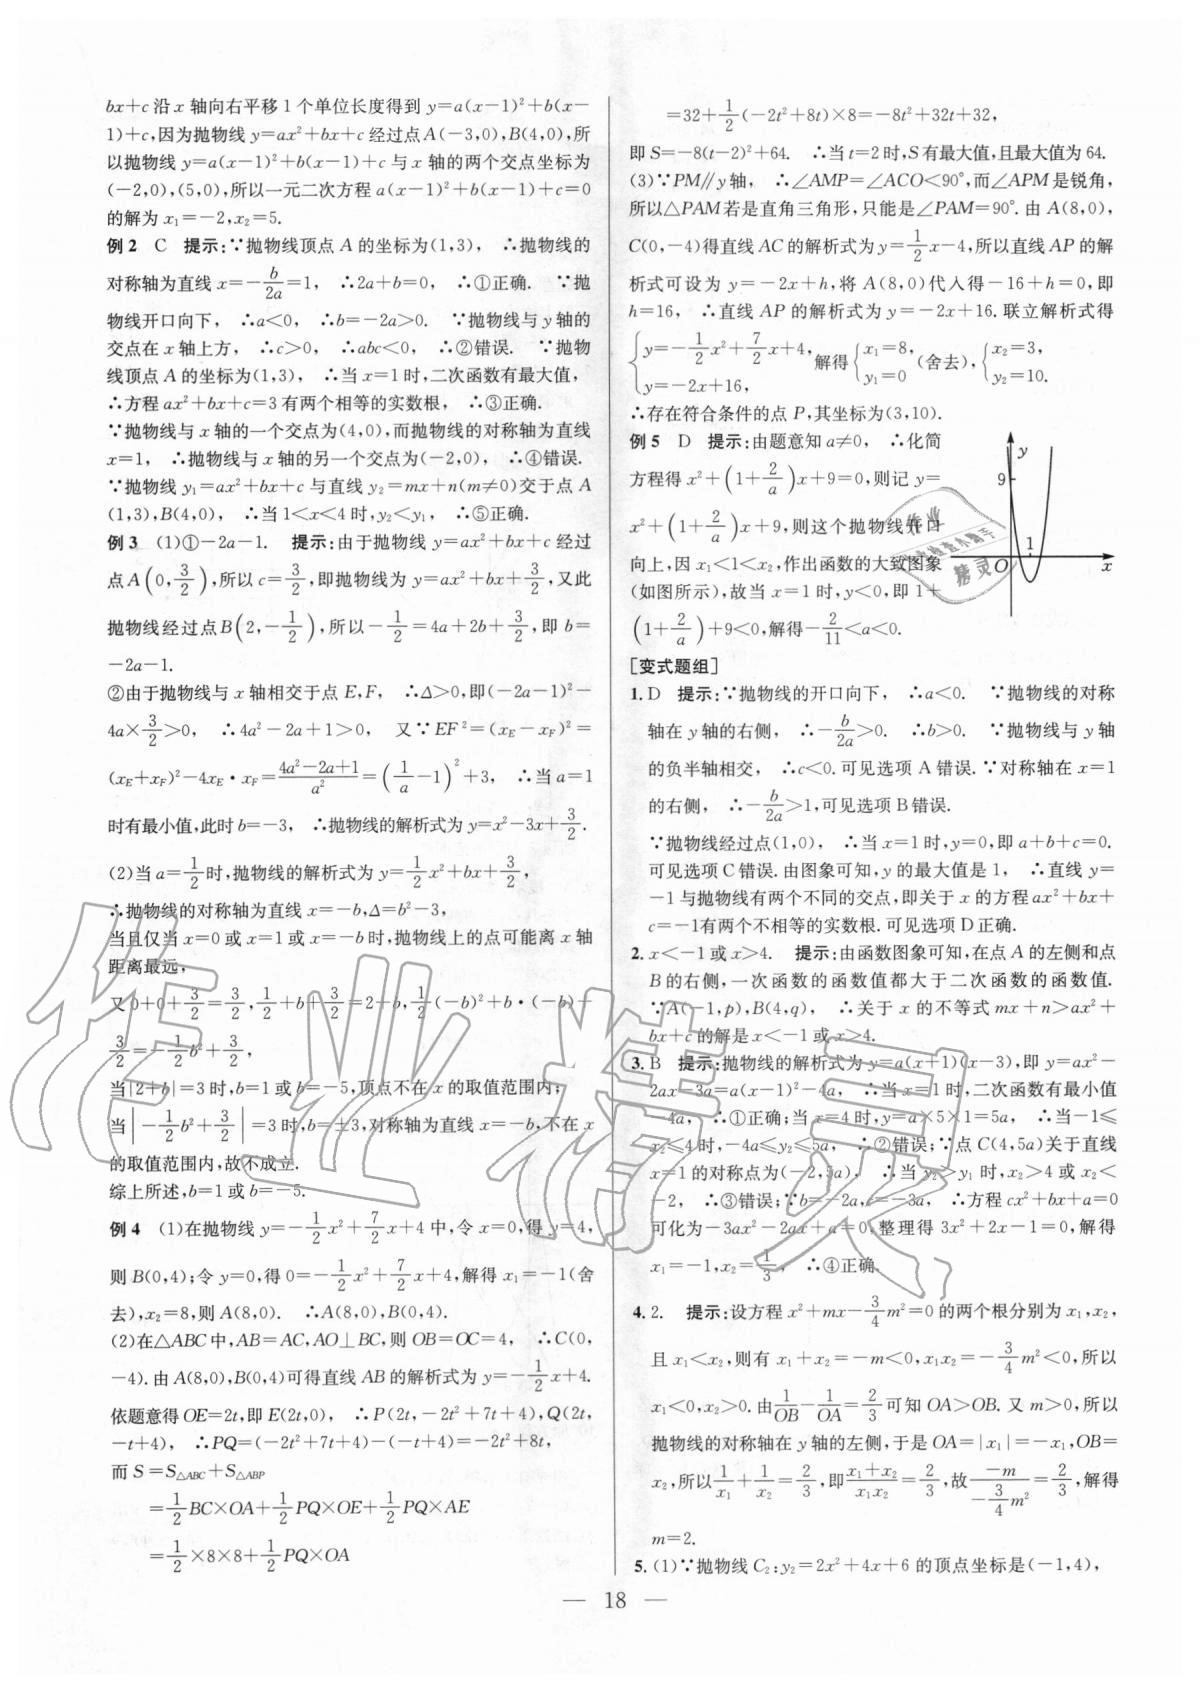 bx+c沿x轴向右平移1个单位长度得到y=a(x-1)²+b(x-
1)+c,因为抛物线y=ax²+bx+c经过点A(-3,0),B(4,0),所
以抛物线y=a(x-1)²+b(x-1)+c与x轴的两个交点坐标为
(-2,0),(5,0),所以一元二次方程a(x-1)²+b(x-1)+c=0
的解为x₁=-2,x₂=5.
例2 C 提示:∵抛物线顶点A的坐标为(1,3), ∴抛物线的
对称轴为直线x=-b/2a=1, ∴2a+b=0, ∴①正确. ∵抛
物线开口向下, ∴a<0, ∴b=-2a>0. ∵抛物线与y轴的
交点在x轴上方, ∴c>0, ∴abc<0, ∴②错误. ∵抛物
线顶点A的坐标为(1,3), ∴当x=1时,二次函数有最大值,
∴方程ax²+bx+c=3有两个相等的实数根, ∴③正确.
∵抛物线与x轴的一个交点为(4,0),而抛物线的对称轴为直线
x=1, ∴抛物线与x轴的另一个交点为(-2,0), ∴④错误.
∵抛物线y₁=ax²+bx+c与直线y₂=mx+n(m≠0)交于点A
(1,3),B(4,0), ∴当1<x<4时,y₂<y₁, ∴⑤正确.
例3 (1)①-2a-1. 提示:由于抛物线y=ax²+bx+c经过
点A(0,3/2),所以c=3/2,即抛物线为y=ax²+bx+3/2,又此
抛物线经过点B(2,-1/2),所以-1/2=4a+2b+3/2,即b=
-2a-1.
②由于抛物线与x轴相交于点E,F, ∴Δ>0,即(-2a-1)²-
4a×3/2>0, ∴4a²-2a+1>0, 又∵EF²=(xE-xF)²=
(xE+xF)²-4xE·xF=(4a²-2a+1)/a²=(1/a-1)²+3, ∴当a=1
时有最小值,此时b=-3, ∴抛物线的解析式为y=x²-3x+3/2.
(2)当a=1/2时,抛物线的解析式为y=1/2x²+bx+3/2,
∴抛物线的对称轴为直线x=-b,Δ=b²-3,
当且仅当x=0或x=1或x=-b时,抛物线上的点可能离x轴
距离最远,
又0+0+3/2=3/2,1/2+b+3/2=2+b,1/2(-b)²+b·(-b)+
3/2=-1/2b²+3/2,
当|2+b|=3时,b=1或b=-5,顶点不在x的取值范围内;
当|-1/2b²+3/2|=3时,b=±3,对称轴为直线x=-b,不在x
的取值范围内,故不成立.
综上所述,b=1或b=-5.
例4 (1)在抛物线y=-1/2x²+7/2x+4中,令x=0,得y=4,
则B(0,4);令y=0,得0=-1/2x²+7/2x+4,解得x₁=-1(舍
去),x₂=8,则A(8,0). ∴A(8,0),B(0,4).
(2)在△ABC中,AB=AC,AO⊥BC,则OB=OC=4, ∴C(0,
-4).由A(8,0),B(0,4)可得直线AB的解析式为y=-1/2x+4.
依题意得OE=2t,即E(2t,0), ∴P(2t,-2t²+7t+4),Q(2t,
-t+4), ∴PQ=(-2t²+7t+4)-(-t+4)=-2t²+8t,
而S=S△ABC+S△ABP
=1/2BC×OA+1/2PQ×OE+1/2PQ×AE
=1/2×8×8+1/2PQ×OA
=32+1/2(-2t²+8t)×8=-8t²+32t+32,
即S=-8(t-2)²+64. ∴当t=2时,S有最大值,且最大值为64.
(3)∵PM∥y轴, ∴∠AMP=∠ACO<90°,而∠APM是锐角,
所以△PAM若是直角三角形,只能是∠PAM=90°.由A(8,0),
C(0,-4)得直线AC的解析式为y=1/2x-4,所以直线AP的解
析式可设为y=-2x+h,将A(8,0)代人得-16+h=0,即
h=16, ∴直线AP的解析式为y=-2x+16.联立解析式得
{y=-1/2x²+7/2x+4, y=-2x+16, 解得{x₁=8, y₁=0 (舍去), {x₂=3, y₂=10.
∴存在符合条件的点P,其坐标为(3,10).
例5 D 提示:由题意知a≠0, ∴化简
方程得x²+(1+2/a)x+9=0,则记y=
x²+(1+2/a)x+9,则这个抛物线开口
向上,因x₁<1<x₂,作出函数的大致图象
(如图所示),故当x=1时,y<0,即1+
(1+2/a)+9<0,解得-2/11<a<0.
y
9
1
O
x
[变式题组]
1. D 提示:∵抛物线的开口向下, ∴a<0. ∵抛物线的对称
轴在y轴的右侧, ∴-b/2a>0. ∴b>0. ∵抛物线与y轴
的负半轴相交, ∴c<0.可见选项A错误.∵对称轴在x=1
的右侧, ∴-b/2a>1,可见选项B错误.
∵抛物线经过点(1,0), ∴当x=1时,y=0,即a+b+c=0.
可见选项C错误.由图象可知,y的最大值是1, ∴直线y=
-1与抛物线有两个不同的交点,即关于x的方程ax²+bx+
c=-1有两个不相等的实数根.可见选项D正确.
2. x<-1或x>4. 提示:由函数图象可知,在点A的左侧和点
B的右侧,一次函数的函数值都大于二次函数的函数值.
∵A(-1,p),B(4,q), ∴关于x的不等式mx+n>ax²+
bx+c的解是x<-1或x>4.
3. B 提示:抛物线的解析式为y=a(x+1)(x-3),即y=ax²-
2ax-3a=a(x-1)²-4a, ∴当x=1时,二次函数有最小值
-4a, ∴①正确;当x=4时,y=a×5×1=5a, ∴当-1≤
x₂≤4时,-4a≤y₂≤5a, ∴②错误;∵点C(4,5a)关于直线
x=1的对称点为(-2,5a), ∴当y₂>y₁时,x₂>4或x₂<
-2, ∴③错误;∵b=-2a,c=-3a, ∴方程cx²+bx+a=0
可化为-3ax²-2ax+a=0,整理得3x²+2x-1=0,解得
x₁=-1,x₂=1/3, ∴④正确.
4. 2. 提示:设方程x²+mx-3/4m²=0的两个根分别为x₁,x₂,
且x₁<x₂,则有x₁+x₂=-m<0,x₁x₂=-3/4m²<0,所以
x₁<0,x₂>0.由1/OB-1/OA=2/3可知OA>OB.又m>0,所以
抛物线的对称轴在y轴的左侧,于是OA=|x₁|=-x₁,OB=
x₂,所以1/x₁+1/x₂=2/3,即(x₁+x₂)/x₁x₂=2/3,故-m/(-3/4m²)=2/3,解得
m=2.
5. (1)∵抛物线C₂:y₂=2x²+4x+6的顶点坐标是(-1,4),
— 18 —
作业精灵